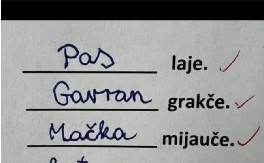 Pas laje.
Gavran grakče.
Mačka mijauče.